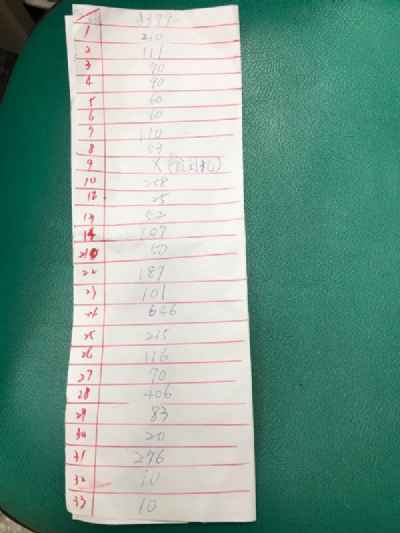 1 210
2 111
3 90
4 90
5 60
6 60
7 110
8 53
9
10 258
12 25
13 52
14 107
210 50
22 187
23 101
24 646
25 235
26 116
27 70
28 406
29 83
30 20
31 296
32 10
33 10